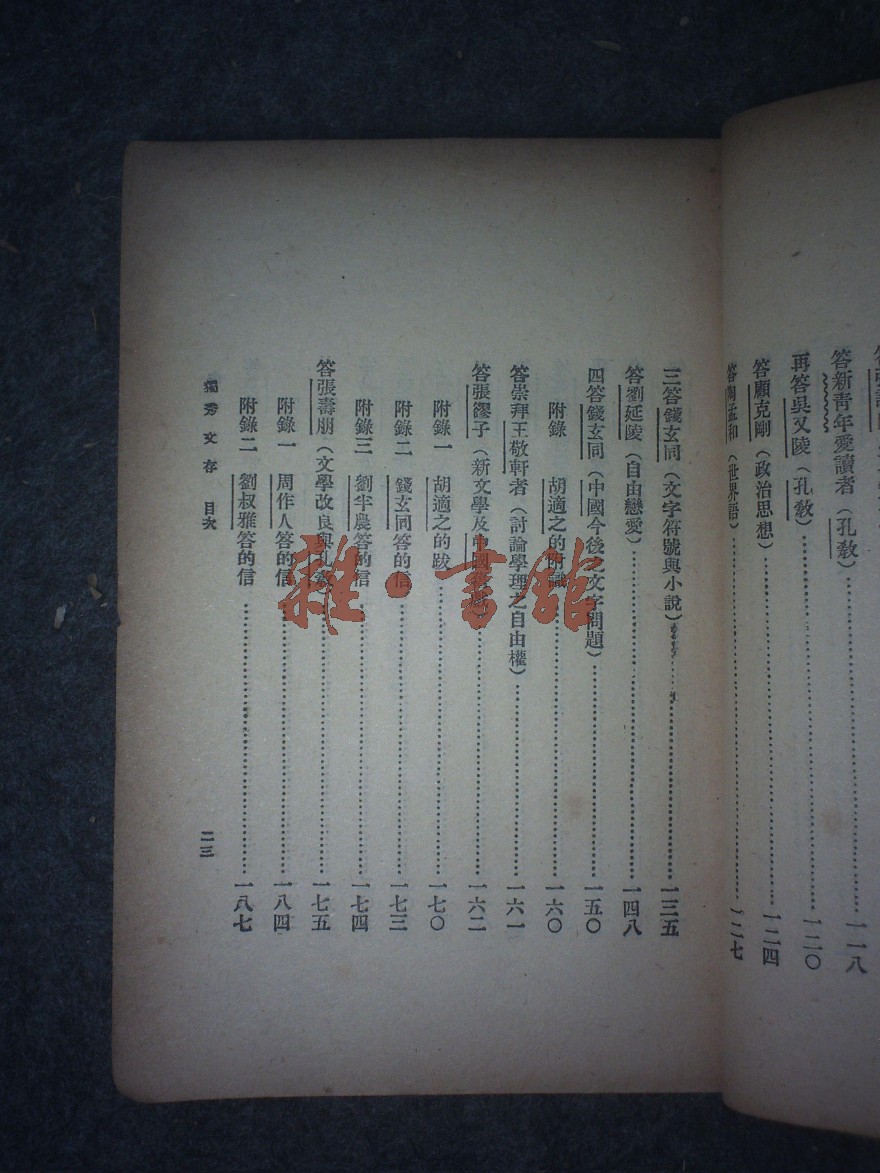 答新青年愛讀者(孔敎)……一一八
再答吳又陵(孔敎)……一二〇
答顧克剛(政治思想)……一二四
答陶孟和(世界語)……一二七
三答錢玄同(文字符號與小說)……一三五
答劉延陵(自由戀愛)……一四八
四答錢玄同(中國今後之文字問題)……一五〇
附錄 胡適之的附識……一六〇
答崇拜王敬軒者(討論學理之自由權)……一六一
答張鏐子(新文學及中國舊戲)……一六二
附錄一 胡適之的跋……一七〇
附錄二 錢玄同答的信……一七三
附錄三 劉半農答的信……一七四
答張壽朋(文學改良與孔敎)……一七五
附錄一 周作人答的信……一八四
附錄二 劉叔雅答的信……一八七
獨秀文存 目次
二三
雜·書館